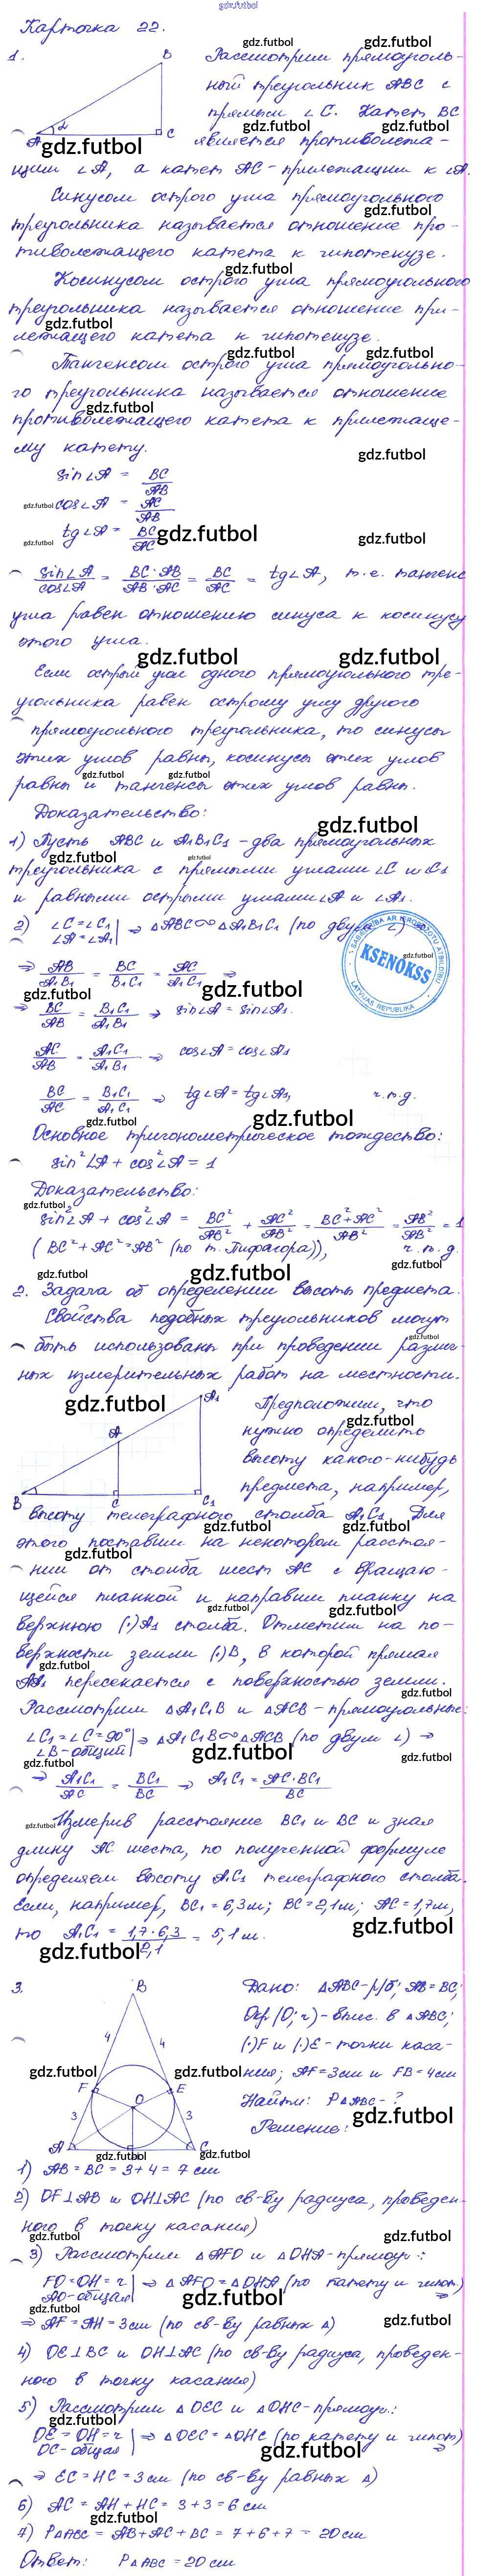 gdz.futbol
Карточка 22.
1.
B
A
α
C
Рассмотрим прямоуголь-
ный треугольник ABC с
прямым ∠C. Катет BC
является противолежа-
щим ∠A, а катет AC - прилежащим к ∠A.
Синусом острого угла прямоугольного
треугольника называется отношение про-
тиволежащего катета к гипотенузе.
Косинусом острого угла прямоугольного
треугольника называется отношение при-
лежащего катета к гипотенузе.
Тангенсом острого угла прямоугольно-
го треугольника называется отношение
противолежащего катета к прилежаще-
му катету.
sin∠A = BC/AB
cos∠A = AC/AB
tg∠A = BC/AC
sin∠A/cos∠A = BC·AB/AB·AC = BC/AC = tg∠A, т.е. тангенс
угла равен отношению синуса к косинусу
этого угла.
Если острый угол одного прямоугольного тре-
угольника равен острому углу другого
прямоугольного треугольника, то синусы
этих углов равны, косинусы этих углов
равны и тангенсы этих углов равны.
Доказательство:
1) Пусть ABC и A1B1C1 - два прямоугольных
треугольника с прямыми углами ∠C и C1
и равными острыми углами ∠A и ∠A1.
2) ∠C = ∠C1
∠A = ∠A1 | ⇒ ΔABC ∞ ΔA1B1C1 (по двум ∠) ⇒
⇒ AB/A1B1 = BC/B1C1 = AC/A1C1 ⇒
⇒ BC/AB = B1C1/A1B1 ⇒ sin∠A = sin∠A1.
AC/AB = A1C1/A1B1 ⇒ cos∠A = cos∠A1
BC/AC = B1C1/A1C1 ⇒ tg∠A = tg∠A1, ч.т.д.
SABIEDRĪBA AR IEROBEŽOTU ATBILDĪBU
KSENOKSS
LATVIJAS REPUBLIKA
Основное тригонометрическое тождество:
sin²∠A + cos²∠A = 1
Доказательство:
sin²∠A + cos²∠A = BC²/AB² + AC²/AB² = BC²+AC²/AB² = AB²/AB² = 1
(BC² + AC² = AB² (по т. Пифагора)), ч.т.д.
2. Задача об определении высоты предмета.
Свойства подобных треугольников могут
быть использованы при проведении различ-
ных измерительных работ на местности.
A1
A
B
C
C1
Предположим, что
нужно определить
высоту какого-нибудь
предмета, например,
высоту телеграфного столба A1C1. Для
этого поставим на некотором расстоя-
нии от столба шест AC с вращаю-
щейся планкой и направим планку на
верхнюю (·)A1 столба. Отметим на по-
верхности земли (·)B, в которой прямая
AA1 пересекается с поверхностью земли.
Рассмотрим ΔA1C1B и ΔACB - прямоугольные:
∠C1 = ∠C = 90°
∠B - общий | ⇒ ΔA1C1B ∞ ΔACB (по двум ∠) ⇒
⇒ A1C1/AC = BC1/BC ⇒ A1C1 = AC·BC1/BC
Измерив расстояние BC1 и BC и зная
длину AC шеста, по полученной формуле
определяем высоту A1C1 телеграфного столба.
Если, например, BC1 = 6,3м; BC = 2,1м; AC = 1,7м,
то A1C1 = 1,7·6,3/2,1 = 5,1 м.
3.
B
4
4
F
E
O
3
3
A
C
Дано: ΔABC - р/б; AB = BC;
Окр(O; r) - впис. в ΔABC;
(·)F и (·)E - точки каса-
ния; AF = 3см и FB = 4см
Найти: PΔABC - ?
Решение:
1) AB = BC = 3 + 4 = 7 см
2) OF⊥AB и OH⊥AC (по св-ву радиуса, проведен-
ного в точку касания)
3) Рассмотрим ΔAFO и ΔOHA - прямоуг.:
FO = OH = r
AO - общая | ⇒ ΔAFO = ΔOHA (по катету и гипот.) ⇒
⇒ AF = AH = 3см (по св-ву равных Δ)
4) OE⊥BC и OH⊥AC (по св-ву радиуса, проведен-
ного в точку касания)
5) Рассмотрим ΔOEC и ΔOHC - прямоуг.:
OE = OH = r
OC - общая | ⇒ ΔOEC = ΔOHC (по катету и гипот) ⇒
⇒ EC = HC = 3см (по св-ву равных Δ)
6) AC = AH + HC = 3 + 3 = 6 см
7) PΔABC = AB + AC + BC = 7 + 6 + 7 = 20 см
Ответ: PΔABC = 20 см